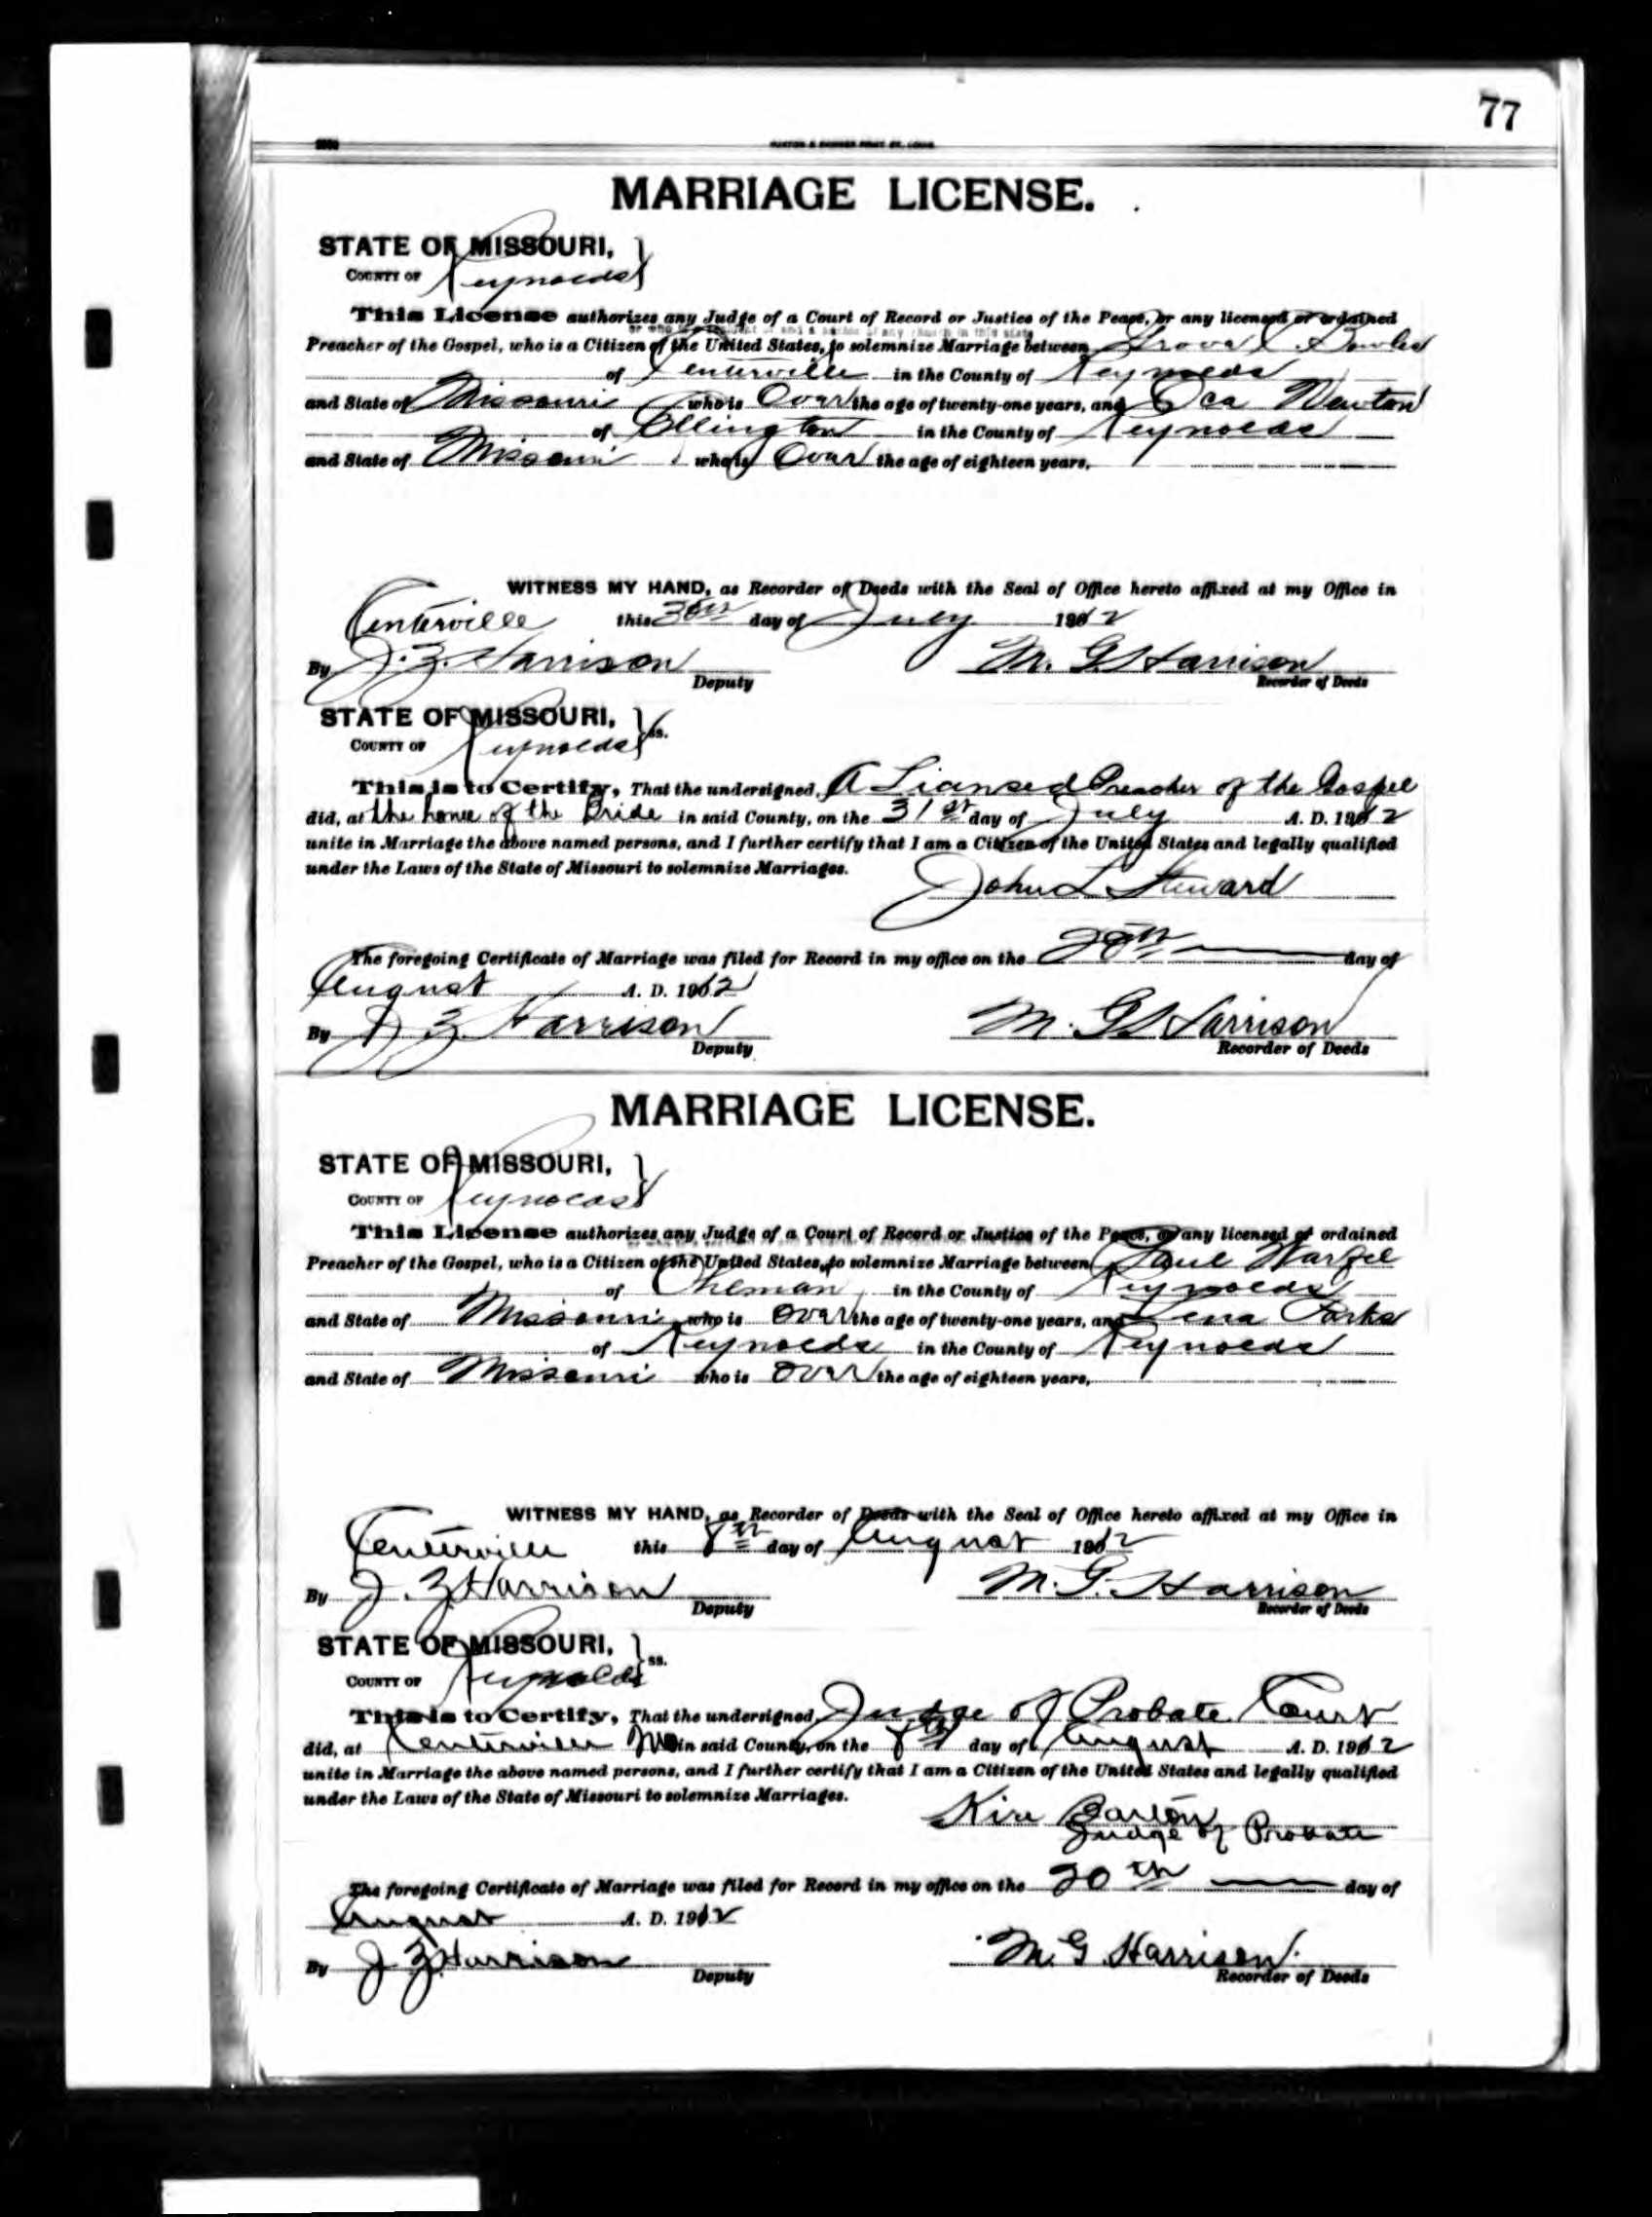 77
MARRIAGE LICENSE.
STATE OF MISSOURI,
COUNTY OF Reynolds
This License authorizes any Judge of a Court of Record or Justice of the Peace, or any licensed or ordained
Preacher of the Gospel, who is a Citizen of the United States, to solemnize Marriage between
of Centerville in the County of Reynolds
and State of Missouri who is Over the age of twenty-one years, and Newton
of Ellington in the County of Reynolds
and State of Missouri who is Over the age of eighteen years,
WITNESS MY HAND, as Recorder of Deeds with the Seal of Office hereto affixed at my Office in
Centerville this 30th day of July 1912
By J. Z. Harrison Deputy M. G. Harrison Recorder of Deeds
STATE OF MISSOURI,
COUNTY OF Reynolds ss.
This is to Certify, That the undersigned, A Liansed Preacher of the Gospel
did, at the home of the Bride in said County, on the 31st day of July A. D. 1912
unite in Marriage the above named persons, and I further certify that I am a Citizen of the United States and legally qualified
under the Laws of the State of Missouri to solemnize Marriages.
John L. Steward
The foregoing Certificate of Marriage was filed for Record in my office on the day of
August A. D. 1912
By J Z Harrison Deputy M. G. Harrison Recorder of Deeds
MARRIAGE LICENSE.
STATE OF MISSOURI,
COUNTY OF Reynolds
This License authorizes any Judge of a Court of Record or Justice of the Peace, or any licensed or ordained
Preacher of the Gospel, who is a Citizen of the United States, to solemnize Marriage between Paul Warfel
of in the County of Reynolds
and State of Missouri who is Over the age of twenty-one years, and Lena Parks
of Reynolds in the County of Reynolds
and State of Missouri who is Over the age of eighteen years,
WITNESS MY HAND, as Recorder of Deeds with the Seal of Office hereto affixed at my Office in
Centerville this 8th day of August 1912
By J. Z Harrison Deputy M. G. Harrison Recorder of Deeds
STATE OF MISSOURI,
COUNTY OF Reynolds ss.
This is to Certify, That the undersigned, Judge of Probate Court
did, at Centerville Mo in said County, on the 8th day of August A. D. 1912
unite in Marriage the above named persons, and I further certify that I am a Citizen of the United States and legally qualified
under the Laws of the State of Missouri to solemnize Marriages.
Barton
Judge of Probate
The foregoing Certificate of Marriage was filed for Record in my office on the 20th day of
August A. D. 1912
By J Z Harrison Deputy M. G. Harrison Recorder of Deeds